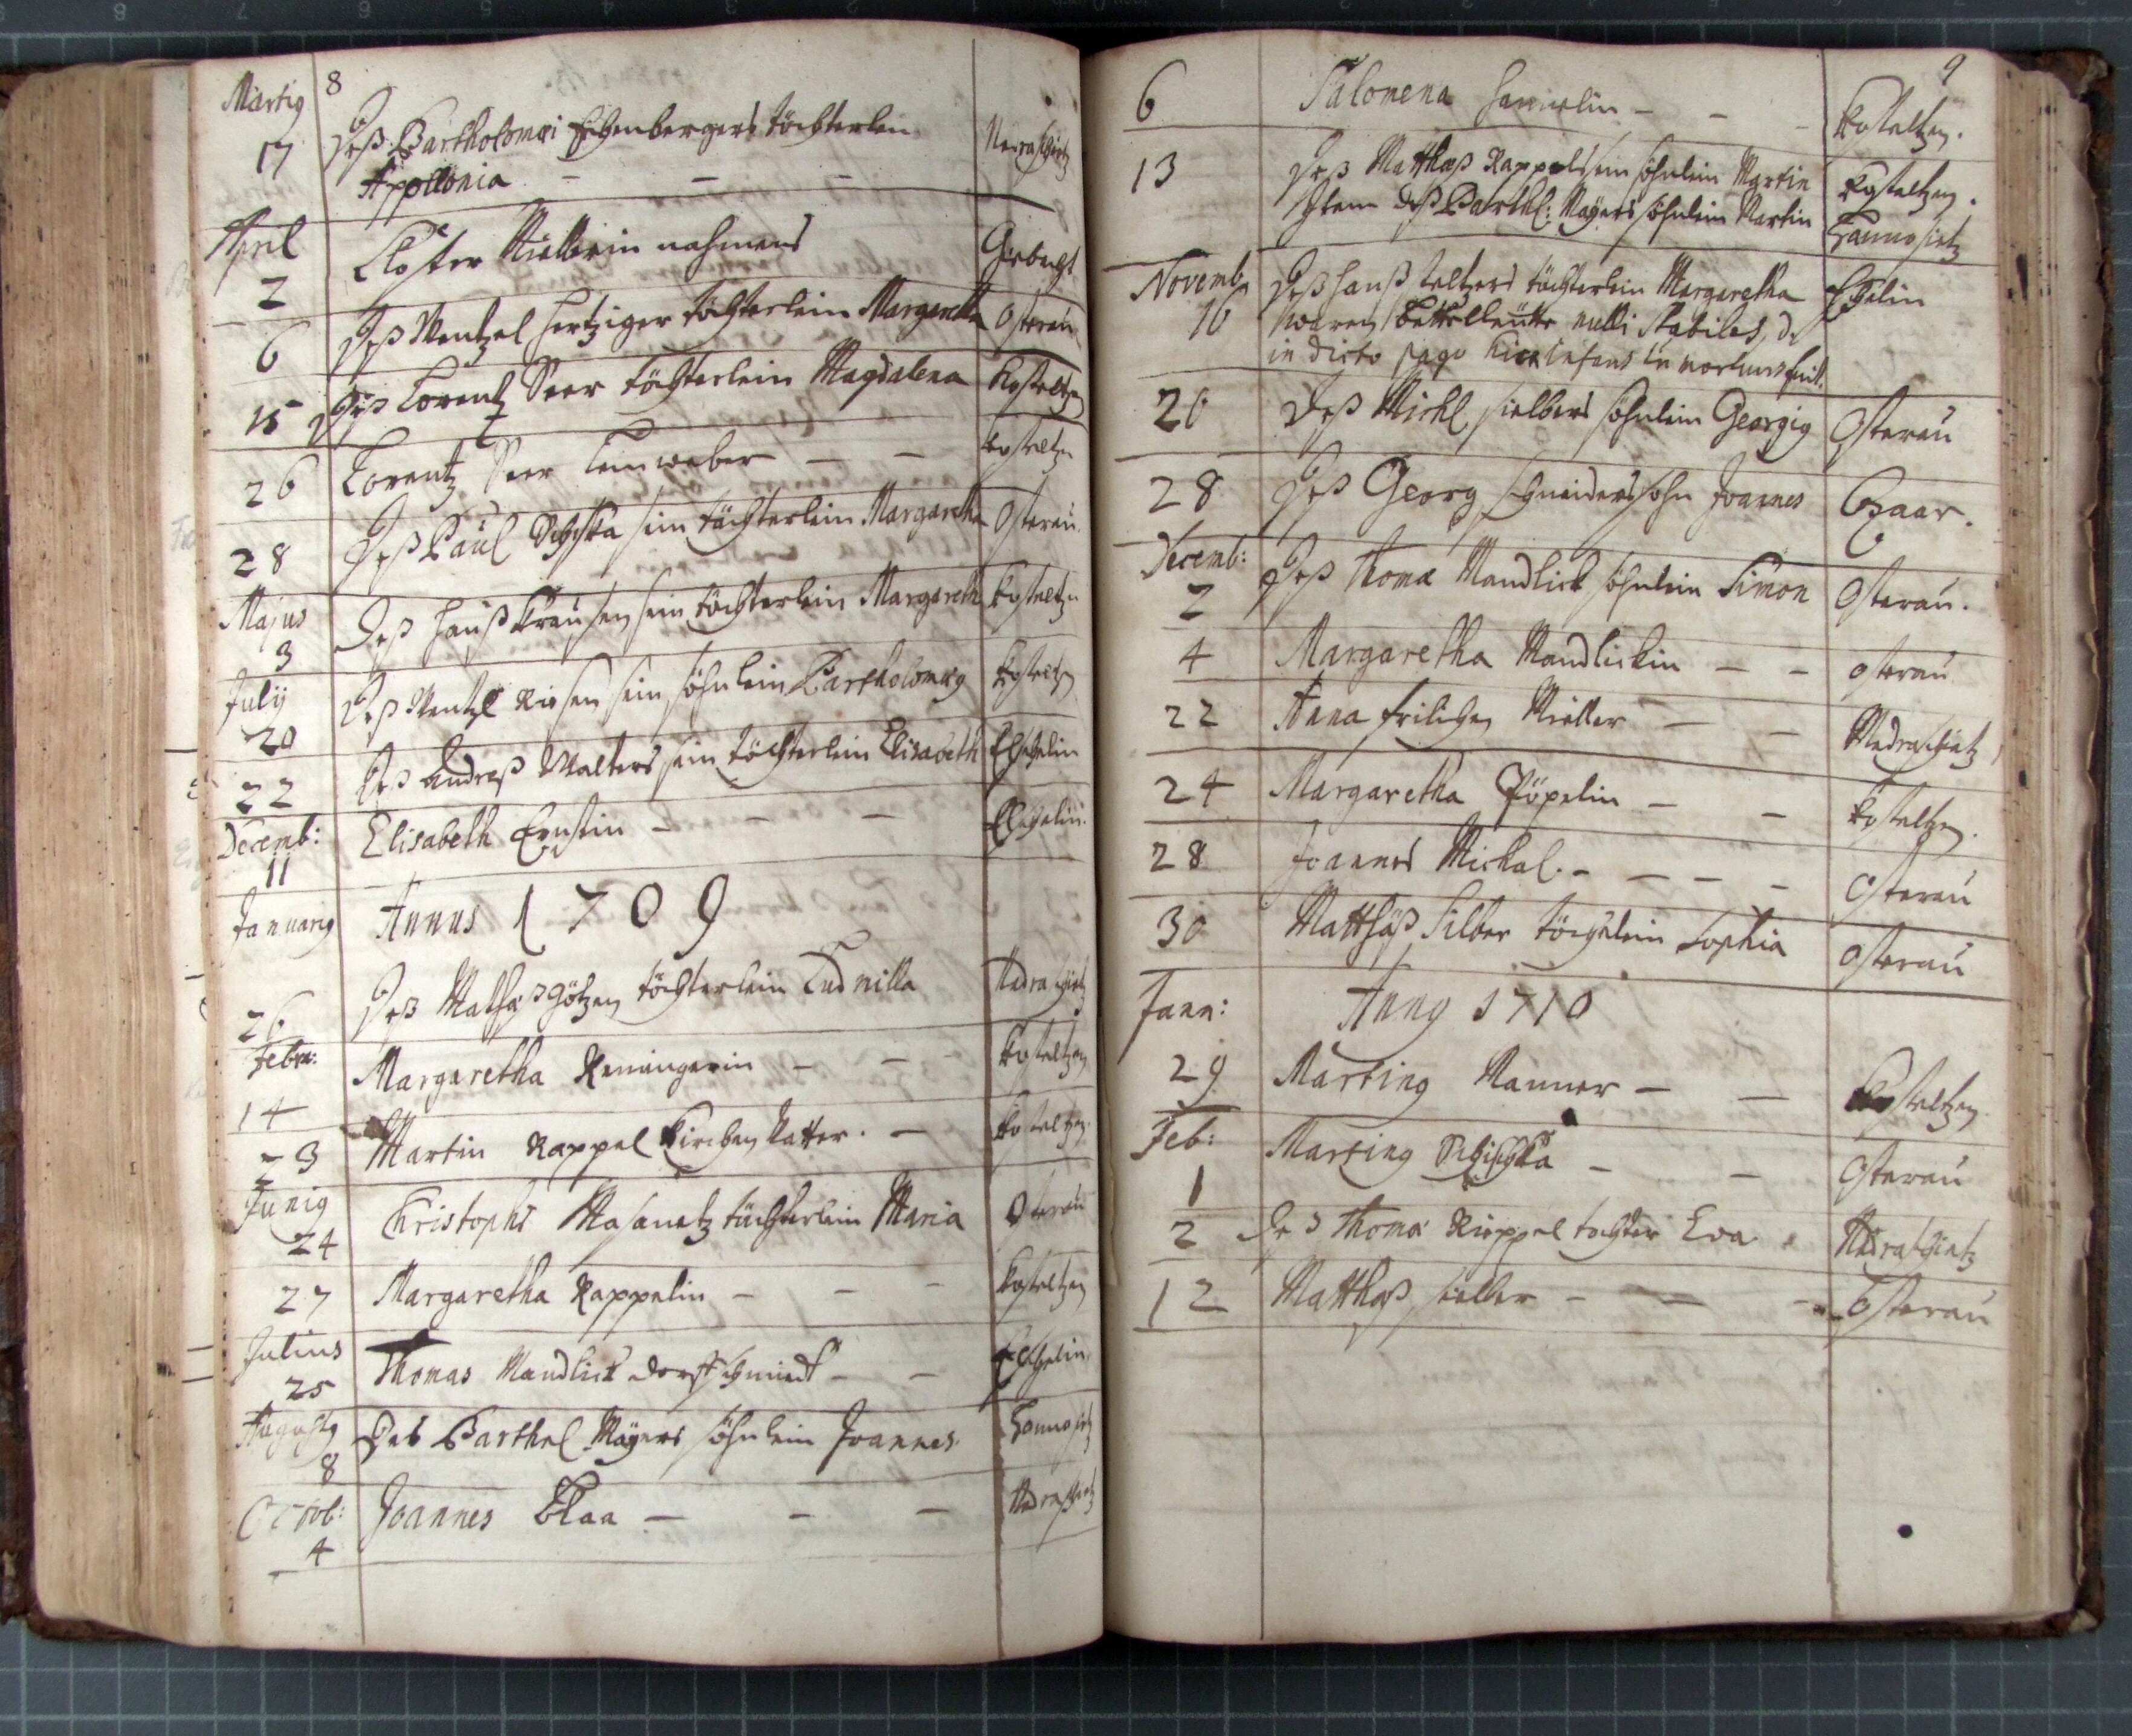 8
Martig
17 Deß Bartholomæi Eschenbergers töchterlein
Apollonia – – –
April
2 Closter Müllerin nahmens
6 Deß Wentzel Hertziger töchterlein Margaretha Osterau
15 Deß Lorentz Seer töchterlein Magdalena Kosteltzen
26 Lorentz Seer Leinweber – – Kosteltzen
28 Deß Paul Schiska sein töchterlein Margaretha Osterau
Majus
3 Deß Hanß Krausen sein töchterlein Margareth Kosteltzen
July
20 Deß Wentzl Riesen sein söhnlein Bartholomæg Kosteltzen
22 Deß Andreß Walters sein töchterlein Elisabeth Elschelin
Decemb:
11 Elisabeth Ernstin – – – Elschelin
Januarig Annus 1709
26 Deß Mathäß Götzen töchterlein Ludmilla Nedraschietz
Febru:
14 Margaretha Remingerin – – Kosteltzen
23 Martin Rappel Kirchen Vatter. – Kosteltzen
Junig
24 Christophs Wasanetz töchterlein Maria Osterau
27 Margaretha Rappelin – – – Kosteltzen
Julius
25 Thomas Mandlick dorffschmidt – – Elschelin
Augustg
8 Deß Barthel Mayers söhnlein Joannes. Hannosietz
Octob:
4 Joannes Blaa – – – Nedraschietz
9
6 Salomena – – – Kosteltzen.
13 Deß Matthæß Rappels sein söhnlein Martin Kosteltzen.
Item deß Barthl: Mayers söhnlein Martin Hannosietz
Novemb
16 Deß Hanß Seltzers töchterlein Margaretha Elschelin
waren Bettelleütte nulli stabiles, d
in dicto pago hicce infans mortuus fuit.
26 Deß Michl Sielbers söhnlein Georgig Osterau
28 Deß Georg Schneiders sohn Joannes
Decemb:
2 Deß Thomæ Mandlick söhnlein Simon Osterau.
4 Margaretha Mandlickin – – Osterau
22 Anna Müller – – Nedraschietz
24 Margaretha Pöpelin – – Kosteltzen.
28 Joannes Michal. – – – – Osterau
30 Matthäß Silber töchterlein Sophia Osterau
Janu: Anng 1710
29 Marting Manner – – Kosteltzen
Feb:
1 Marting Schischka – – Osterau
2 Des Thomæ Rieppel tochter Eva Nedraschietz
12 Matthæß Sielber – – – Osterau